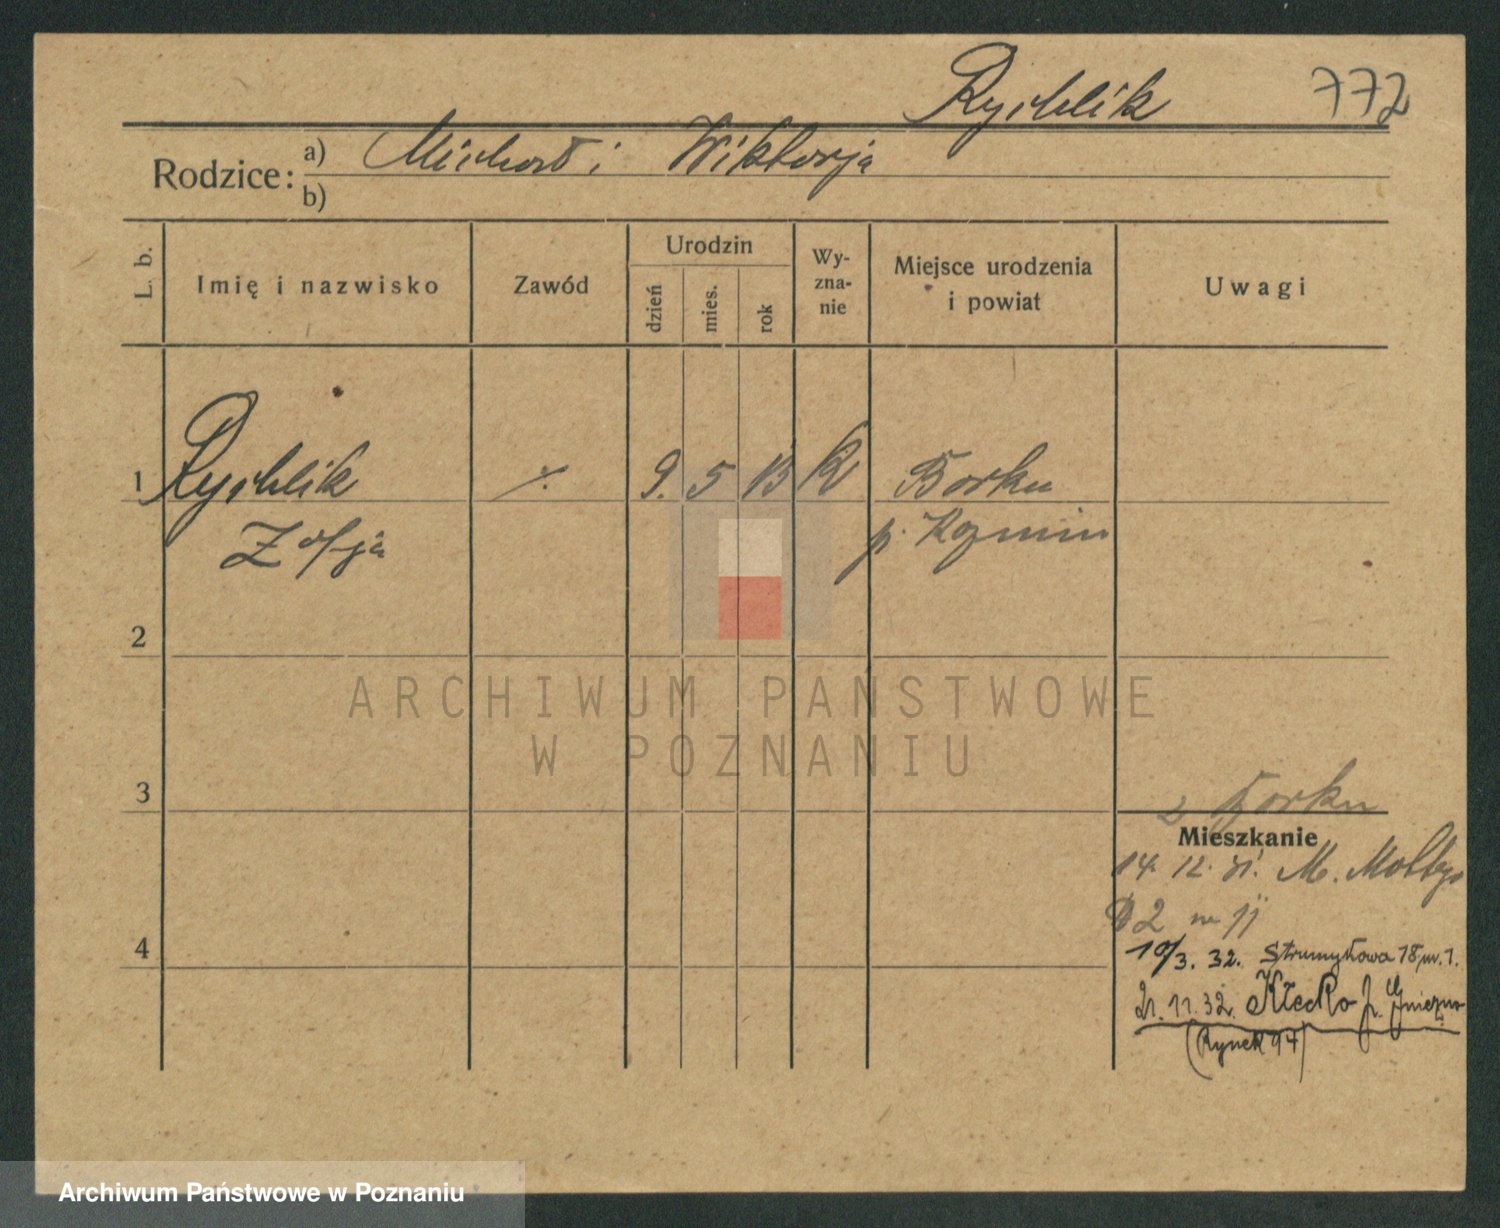 Rychlik 772
Rodzice: a) Michał i Wiktorja
b)
L. b. Imię i nazwisko Zawód Urodzin dzień mies. rok Wy-zna-nie Miejsce urodzenia i powiat Uwagi
1 Rychlik ·/. 9. 5 13 K Borku
Zofja p. Kozmin
2
ARCHIWUM PAŃSTWOWE
W POZNANIU
3
z Borku
Mieszkanie
14. 12. 31. M.
2 m 11
4
10/3. 32. Strumykowa 18 m. 1.
21. 11. 32. Kłecko p. Gniezno
(Rynek 97)
Archiwum Państwowe w Poznaniu